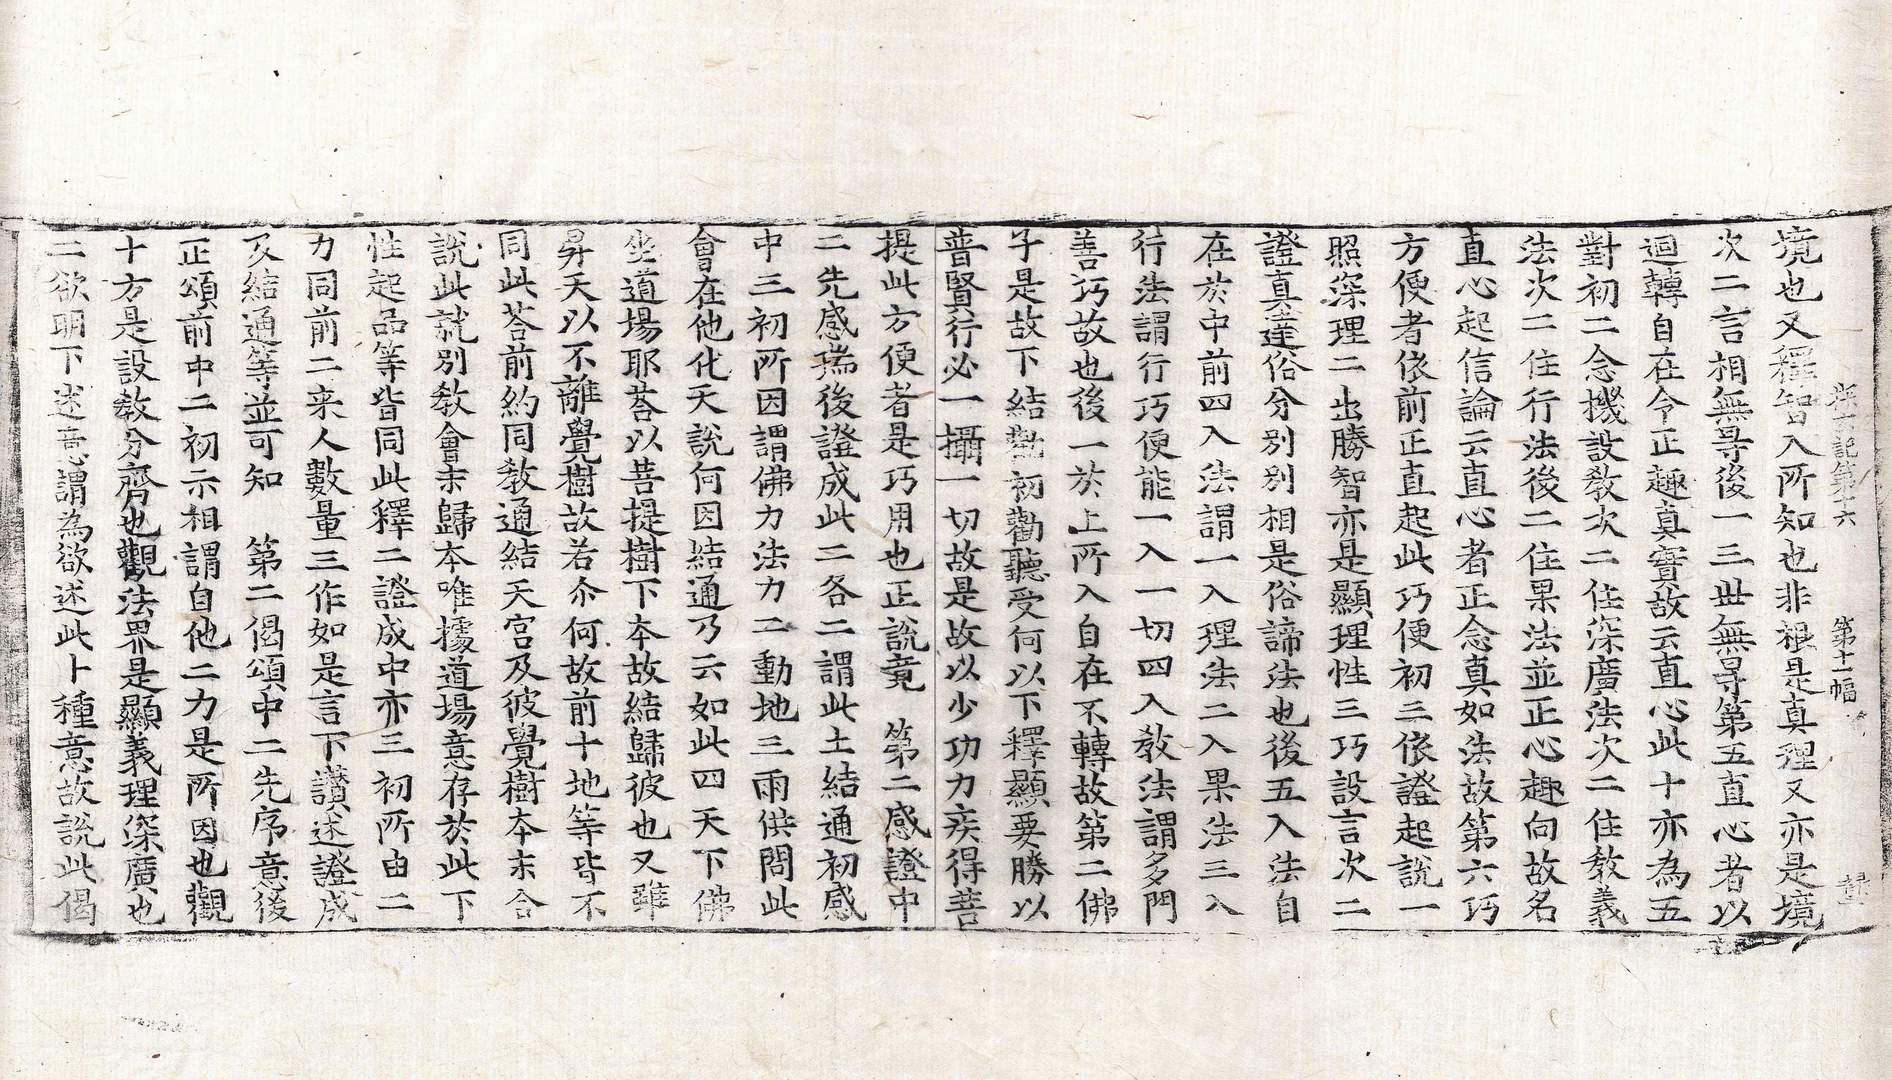 境也又釋智入所知也非根是真理又亦是境
次二言相無㝵後一三世無㝵第五直心者以
迴轉自在令正趣真實故云直心此十亦為五
對初二念機設教次二住深廣法次二住教義
法次二住行法後二住果法並正心趣向故名
直心起信論云直心者正念真如法故第六巧
方便者依前正直起此巧便初三依證起說一
照深理二出勝智亦是顯理性三巧設言次二
證真達俗分別別相是俗諦法也後五入法自
在於中前四入法謂一入理法二入果法三入
行法謂行巧便能一入一切四入教法謂多門
善巧故也後一於上所入自在不轉故第二佛
子是故下結勸初勸聽受何以下釋顯要勝以
普賢行必一攝一切故是故以少功力疾得菩
提此方便者是巧用也正說竟　第二感證中
二先感瑞後證成此二各二謂此土結通初感
中三初所因謂佛力法力二動地三雨供問此
會在他化天說何因結通乃云如此四天下佛
坐道場耶荅以菩提樹下夲故結歸彼也又雖
昇天以不離覺樹故若尒何故前十地等皆不
同此荅前約同教通結天宮及彼覺樹夲末合
說此就別教會末歸夲唯據道場意存於此下
性起品等皆同此釋二證成中亦三初所由二
力同前二来人數量三作如是言下讚述證成
及結通等並可知　第二偈頌中二先序意後
正頌前中二初示相謂自他二力是所因也觀
十方是設教分齊也觀法界是顯義理深廣也
二欲明下述意謂為欲述此卜種意故說此偈
記第十六　第十一幅